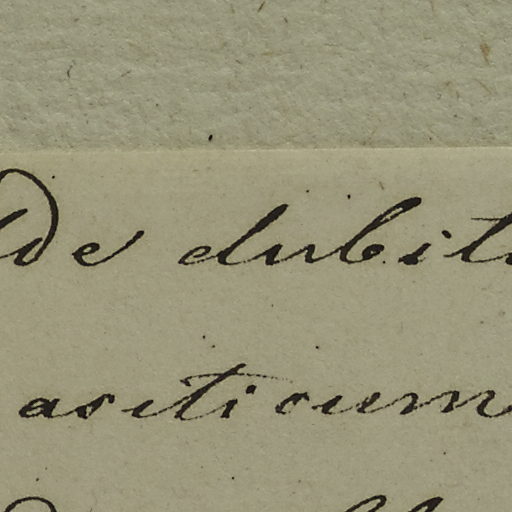 de dubit
asiticum